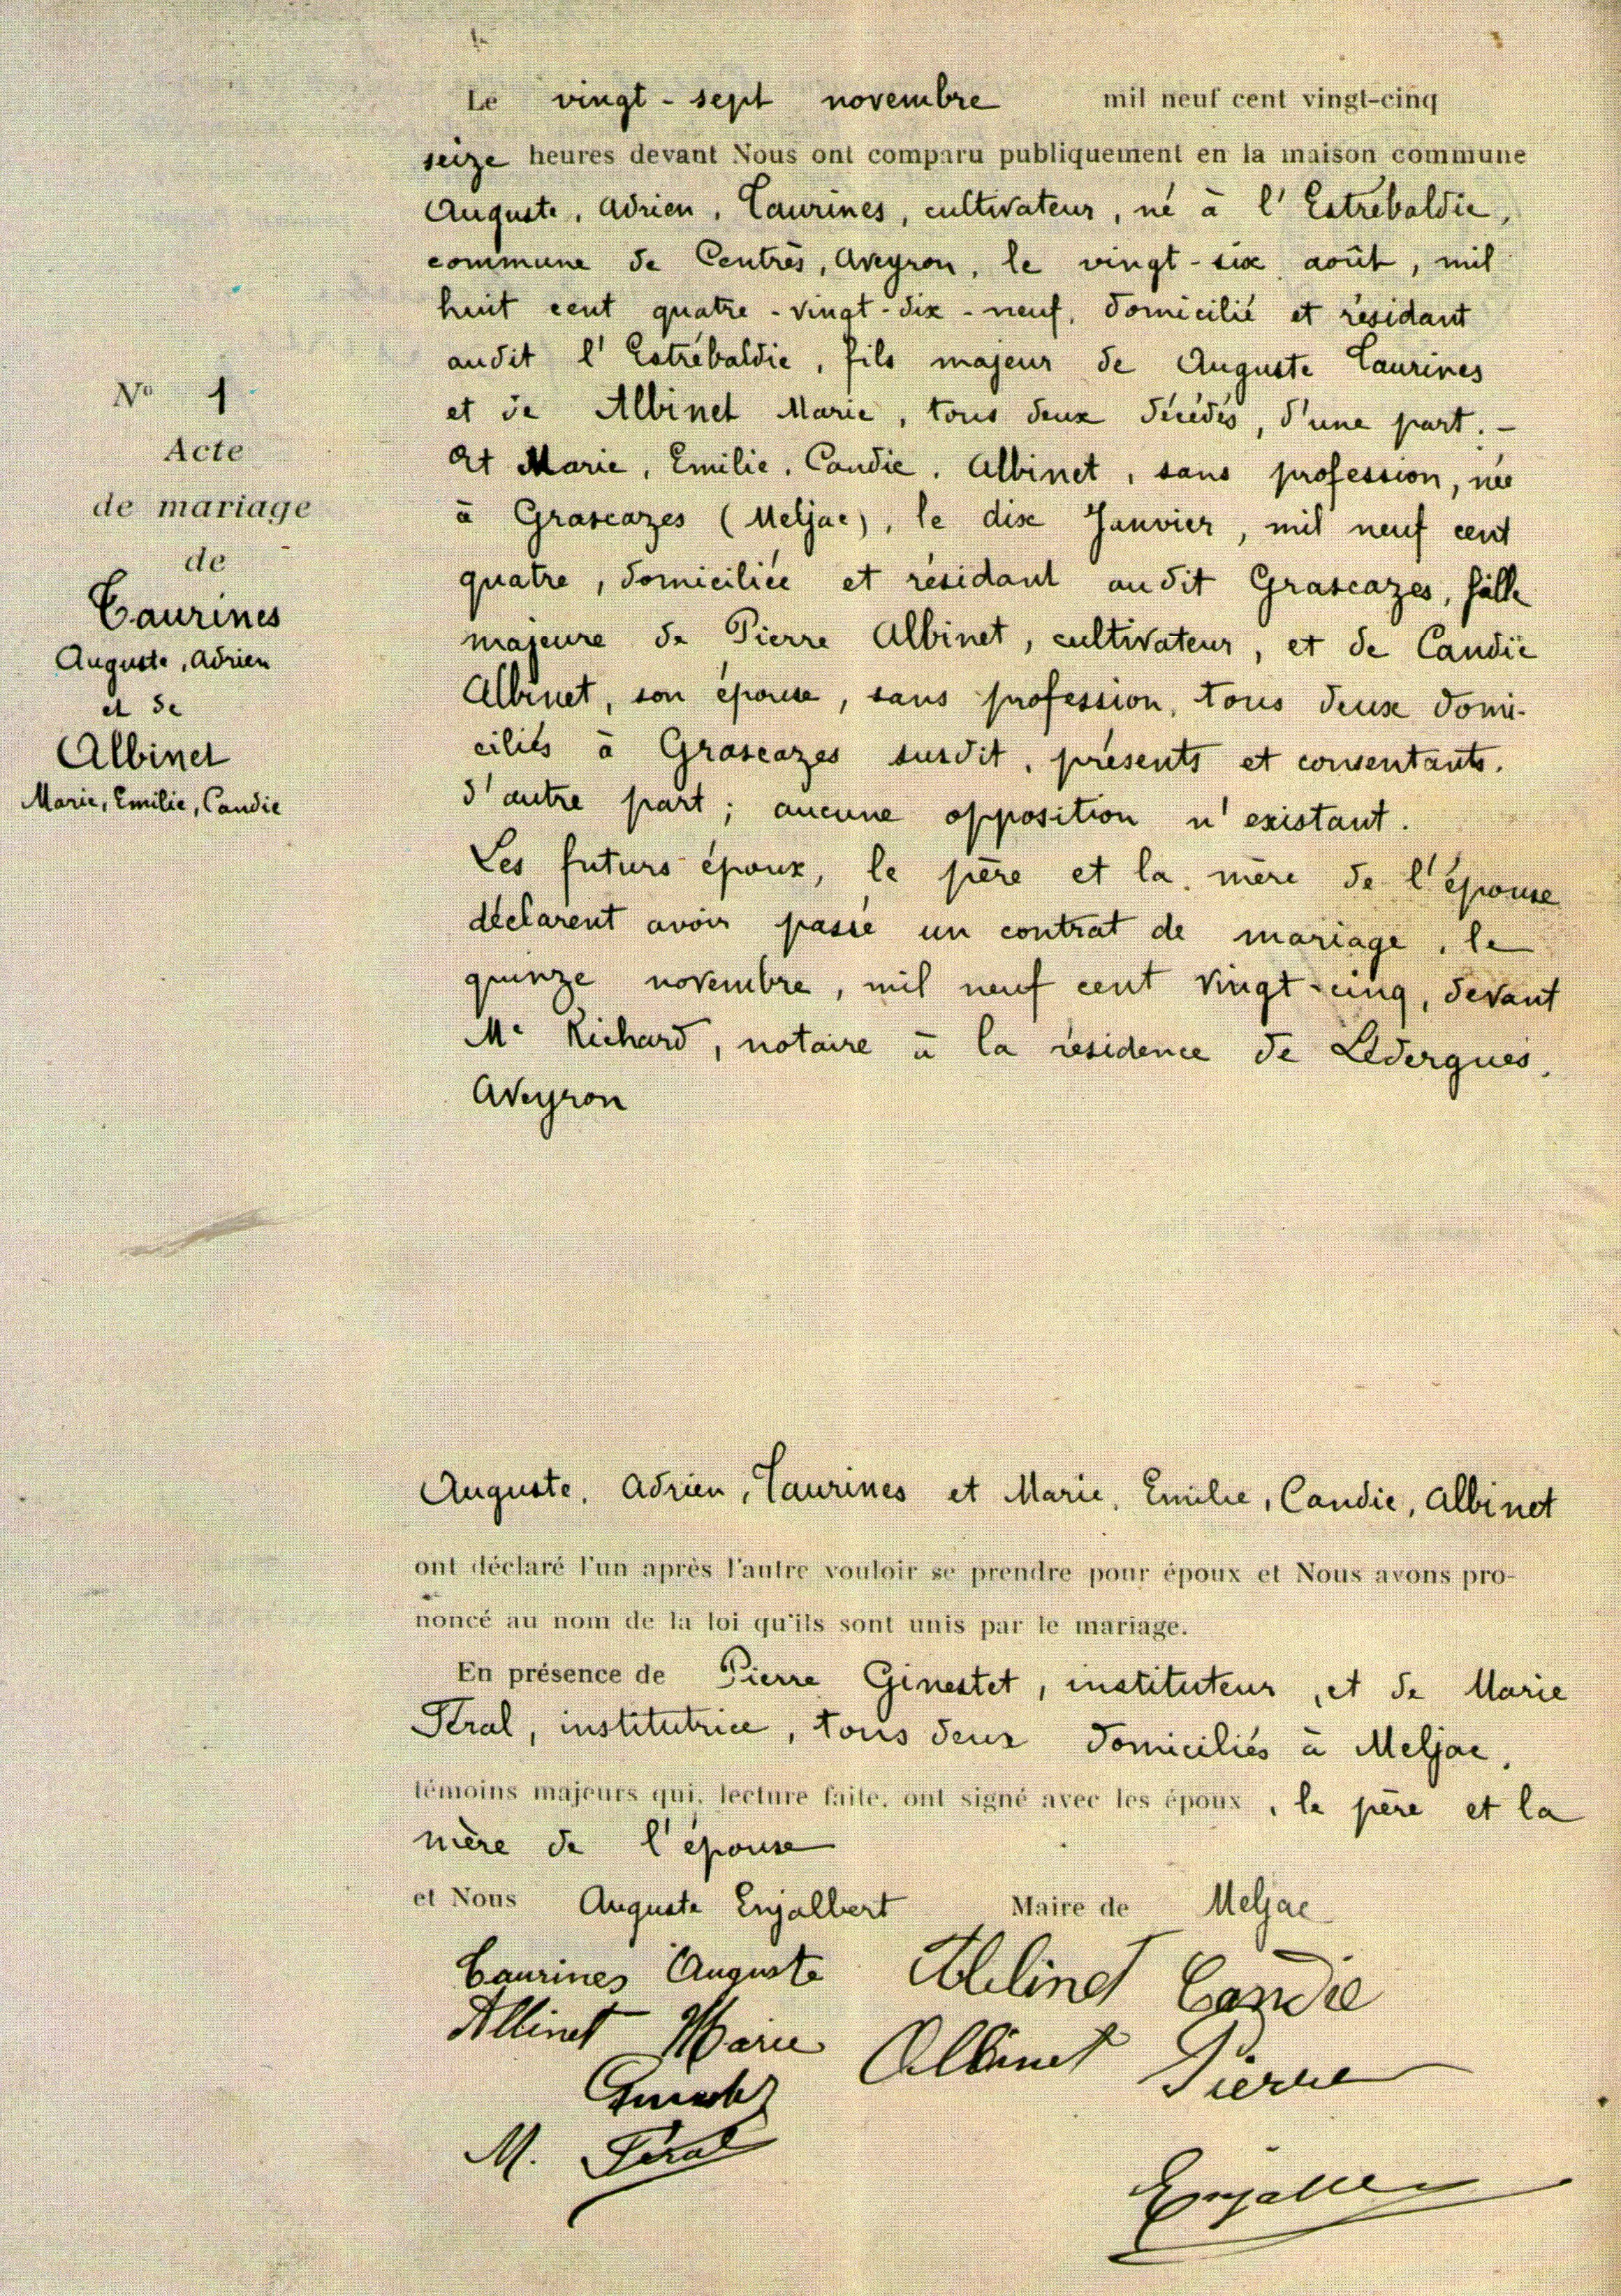 Le vingt-sept novembre mil neuf cent vingt-cinq
seize heures devant Nous ont comparu publiquement en la maison commune
Auguste, Adrien, Taurines, cultivateur, né à l'Estrébaldie,
commune de Centrès, Aveyron, le vingt-six août, mil
huit cent quatre-vingt-dix-neuf, domicilié et résidant
audit l'Estrébaldie, fils majeur de Auguste Taurines
et de Albinet Marie, tous deux décédés, d'une part.-
Et Marie, Emilie, Candie, Albinet, sans profession, née
à Grascazes (Meljac), le dix Janvier, mil neuf cent
quatre, domiciliée et résidant audit Grascazes, fille
majeure de Pierre Albinet, cultivateur, et de Candie
Albinet, son épouse, sans profession, tous deux domi-
ciliés à Grascazes susdit, présents et consentants.
d'autre part ; aucune opposition n'existant.
Les futurs époux, le père et la mère de l'épouse
déclarent avoir passé un contrat de mariage, le
quinze novembre, mil neuf cent vingt-cinq, devant
Me Richard, notaire à la résidence de Lédergues,
Aveyron
No 1
Acte
de mariage
de
Taurines
Auguste, Adrien
et de
Albinet
Marie, Emilie, Candie
Auguste, Adrien, Taurines et Marie, Emilie, Candie, Albinet
ont déclaré l'un après l'autre vouloir se prendre pour époux et Nous avons pro-
noncé au nom de la loi qu'ils sont unis par le mariage.
En présence de Pierre Ginestet, instituteur, et de Marie
Féral, institutrice, tous deux domiciliés à Meljac,
témoins majeurs qui, lecture faite, ont signé avec les époux, le père et la
mère de l'épouse
et Nous Auguste Enjalbert Maire de Meljac
Taurines Auguste Albinet Candie
Albinet Marie Albinet Pierre
Ginestet
M. Féral
Enjalbert